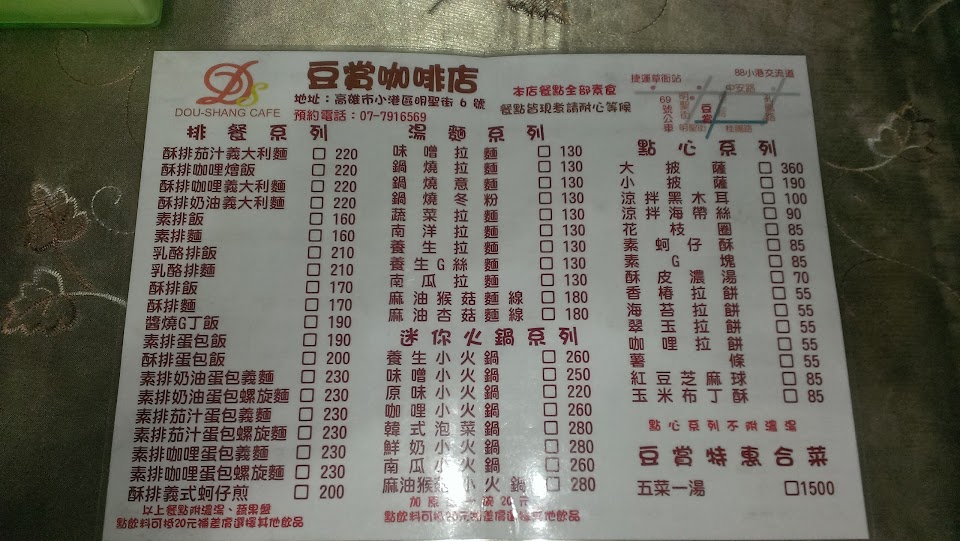 豆賞咖啡店
DS
DOU-SHANG CAFE
地址：高雄市小港區明聖街 6 號
預約電話：07-7916569
本店餐點全部素食
餐點皆現煮請耐心等候
捷運草衙站
88小港交流道
中安路
明聖街
豆賞
69號公車
明聖街
桂陽路
排餐系列
酥排茄汁義大利麵 □ 220
酥排咖哩燴飯 □ 220
酥排咖哩義大利麵 □ 220
酥排奶油義大利麵 □ 220
素排飯 □ 160
素排麵 □ 160
乳酪排飯 □ 210
乳酪排麵 □ 210
酥排飯 □ 170
酥排麵 □ 170
醬燒G丁飯 □ 190
素排蛋包飯 □ 190
酥排蛋包飯 □ 200
素排奶油蛋包義麵 □ 230
素排奶油蛋包螺旋麵 □ 230
素排茄汁蛋包義麵 □ 230
素排茄汁蛋包螺旋麵 □ 230
素排咖哩蛋包義麵 □ 230
素排咖哩蛋包螺旋麵 □ 230
酥排義式蚵仔煎 □ 200
以上餐點附濃湯、蔬果盤
點飲料可抵20元補差價選擇其他飲品
湯麵系列
味噌拉麵 □ 130
鍋燒拉麵 □ 130
鍋燒意麵 □ 130
鍋燒冬粉 □ 130
蔬菜拉麵 □ 130
南洋拉麵 □ 130
養生拉麵 □ 130
養生G絲麵 □ 130
南瓜拉麵 □ 130
麻油猴菇麵線 □ 180
麻油杏菇麵線 □ 180
迷你火鍋系列
養生小火鍋 □ 260
味噌小火鍋 □ 250
原味小火鍋 □ 220
咖哩小火鍋 □ 260
韓式泡菜鍋 □ 280
鮮奶小火鍋 □ 280
南瓜小火鍋 □ 260
麻油猴菇小火鍋 □ 280
20元
點飲料可抵20元補差價選擇其他飲品
點心系列
大披薩 □ 360
小披薩 □ 190
涼拌黑木耳 □ 100
涼拌海帶絲 □ 90
花枝圈 □ 85
素蚵仔酥 □ 85
素G塊 □ 85
酥皮濃湯 □ 70
香椿拉餅 □ 55
海苔拉餅 □ 55
翠玉拉餅 □ 55
咖哩拉餅 □ 55
薯條 □ 55
紅豆芝麻球 □ 85
玉米布丁酥 □ 85
點心系列不附濃湯
豆賞特惠合菜
五菜一湯 □1500